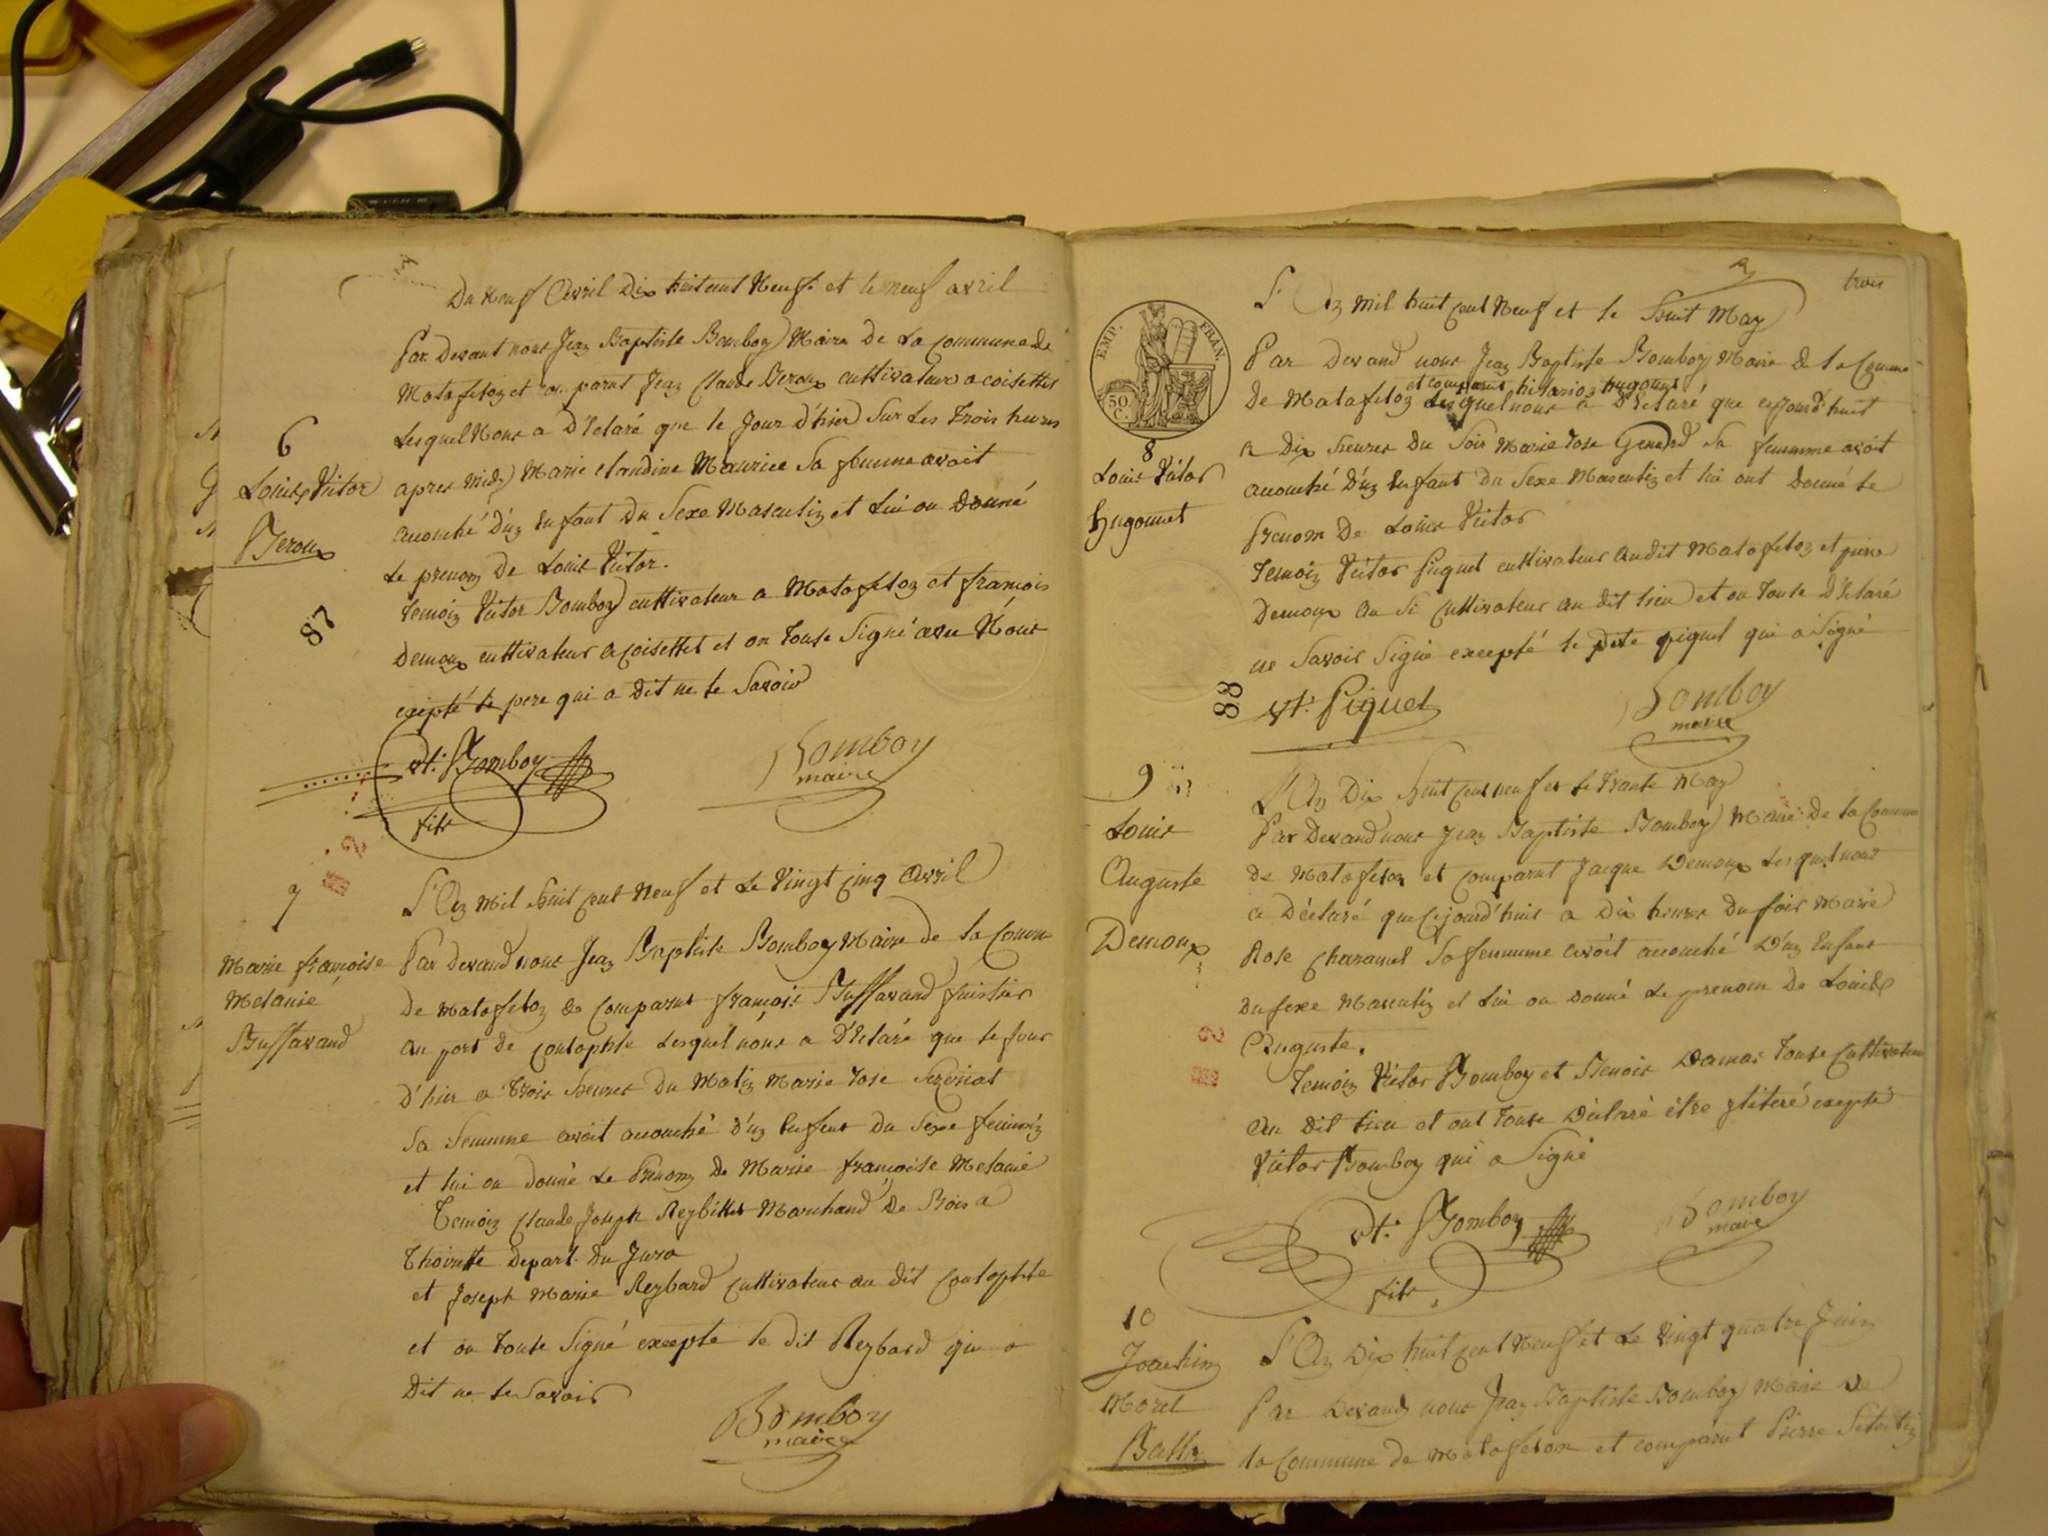 Du Neuf Avril Dix huit cent Neuf. et le neuf avril
Par Devant nous Jean Baptiste Bomboy Maire De La Commune de
Matafelon et com parut Jean Claude Beroux cultivateur a coisettes
Lesquel Nous a D'Eclaré que le Jour d'hier Sur Les Trois heures
apres Midy Marie claudine Maurice Sa femme avoit
acouché D'un Enfant Du Sexe Masculin et Lui on Donné
Le prenom De Louis Victor.
Temoin Victor Bomboy cultivateur a Matafelon et francois
Demoux cultivateur a coisettes et on Touse Signé avec Nous
exepté le pere qui a Dit ne le Savoir
6
Louis Victor
Beroux
87
vt. Bomboy
fils
Bomboy
maire
7
Marie françoise
Melanie
Buffavand
L'An Mil huit cent Neuf et Le Vingt cinq Avril
Par Devand nous Jean Baptiste Bomboy Maire de la Comm
De Matafelon & Comparut françois Buffavand
au port de Conflophle Lesquel nous a D'Eclaré que le Jour
D'hier a Trois heures Du Matin Marie Rose
Sa femme avoit acouché d'un Enfent Du Sexe feminin
et lui on Donné Le Prenom De Marie françoise Melanie
Temoin Claude Joseph Marchand De Bois a
Thoirette Depart. Du Jura
et Joseph Marie Reybard Cultivateur au dit
et on Touse Signé excepte le dit Reybard qui a
Dit ne le Savoir
Bomboy
maire
trois
EMP. FRAN.
50 C.
L'An Mil huit Cent Neuf et le huit May
Par Devand nous Jean Baptiste Bomboy Maire de la Commu
et comparut hilarion hugonet
De Matafelon Lesquel nous a D'Eclaré que cejourd'huit
a Dix heures Du Soir Marie Rose Sa femmme avoit
acouché D'un Enfant Du Sexe Masculin et lui ont Donné le
Prenom De Louis Victor
Temoin Victor Piquet cultivateur audit Matafelon et pierre
Demoux au Si Cultivateur au dit lieu et on Toute D'Eclaré
ne Savoir Signé excepté le piquet qui a Signé
8
Louis Victor
hugonnet
88
vt. Piquet
Bomboy
maire
9
Louis
Auguste
Demoux
L'An Dix huit Cent neuf et le Trante May
Par Devand nous Jean Baptiste Bomboy Maire de la Commune
de Matafelon et Comparut Jacque Demoux Lesquel nous
a Déclaré que Cejourd'huit a Dix heures Du soir Marie
Rose Charamel Sa femmme avoit acouché D'un Enfant
Du sexe Masculin et Lui on Donné Le prenom De Louis
Auguste.
Temoin Victor Bomboy et Benoit Damas Touse Cultivateur
au Dit lieu et ont Touse Déclaré être exepté
Victor Bomboy qui a Signé
vt. Bomboy
fils
Bomboy
maire
10
Joachim
Morel
L'An Dix huit Cent Neuf et Le Vingt quatre Juin
Par Devand nous Jean Baptiste Bomboy Maire De
la Commune de Matafelon et comparut Pierre